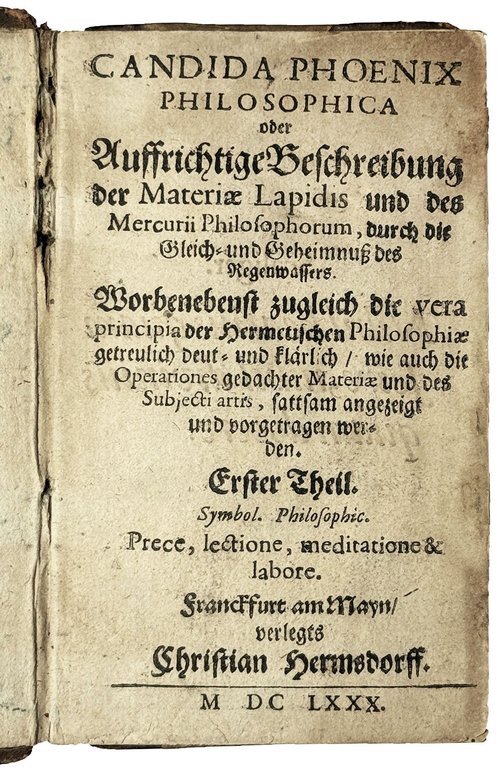 CANDIDA PHOENIX
PHILOSOPHICA
oder
Auffrichtige Beschreibung
der Materiæ Lapidis und des
Mercurii Philosophorum, durch die
Gleich- und Geheimnuß des
Regenwassers.
Worbenebenst zugleich die vera
principia der Hermetischen Philosophiæ
getreulich deut- und klärlich / wie auch die
Operationes gedachter Materiæ und des
Subjecti artis, sattsam angezeigt
und vorgetragen wer-
den.
Erster Theil.
Symbol. Philosophic.
Prece, lectione, meditatione &
labore.
Franckfurt am Mayn /
verlegts
Christian Hermsdorff.
M DC LXXX.